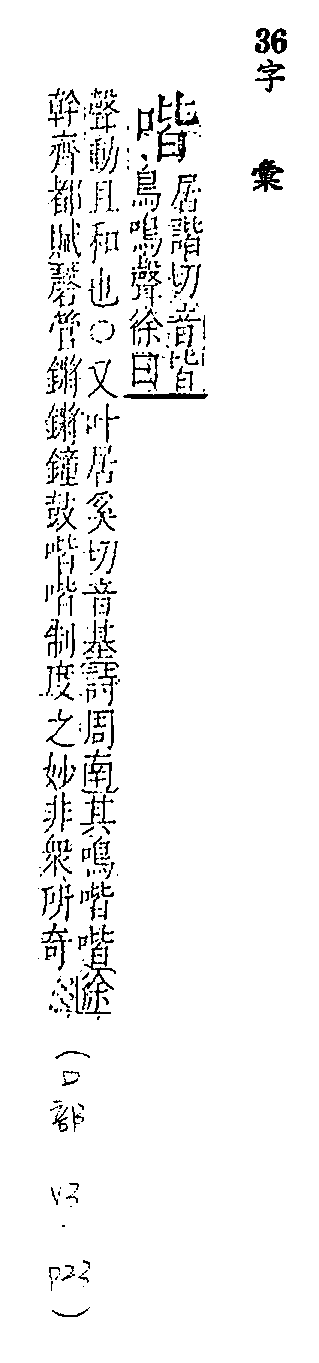 36 字彙
喈 居諧切音皆
鳥鳴聲徐曰
聲動且和也○又叶居奚切音基詩周南其鳴喈喈徐
幹齊都賦磬管鏘鏘鐘鼓喈喈制度之妙非衆所奇
(口部 V3.P23)